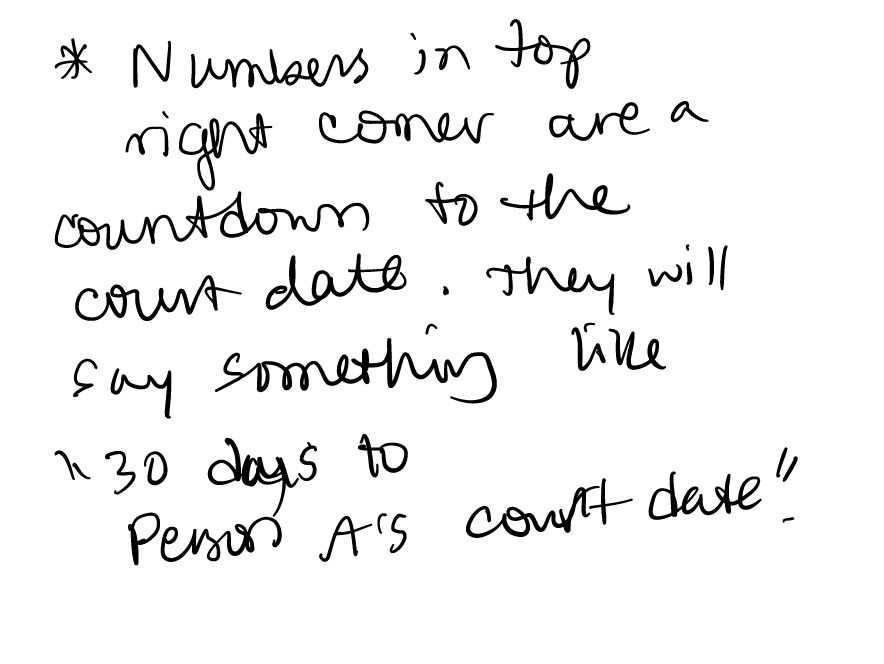 * Numbers in top
right corner are a
countdown to the
court date. They will
say something like
"30 days to
Person A's court date".